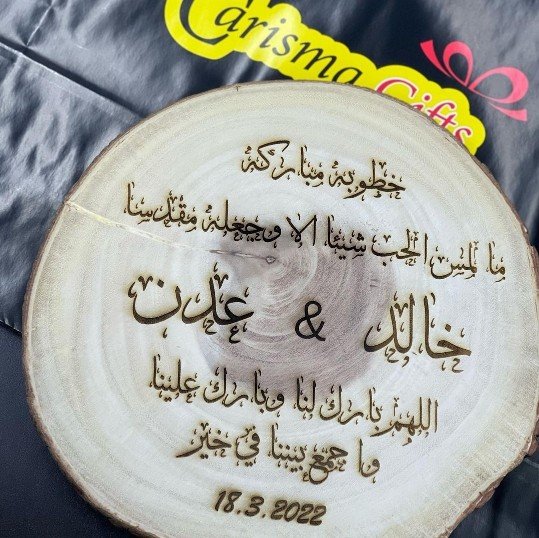 Carisma Gifts
خطوبه مباركه
ما لمس الحب شيئا الا وجعله مقدسا
خالد & عدن
اللهم بارك لنا وبارك علينا
واجمع بيننا في خير
18.3.2022